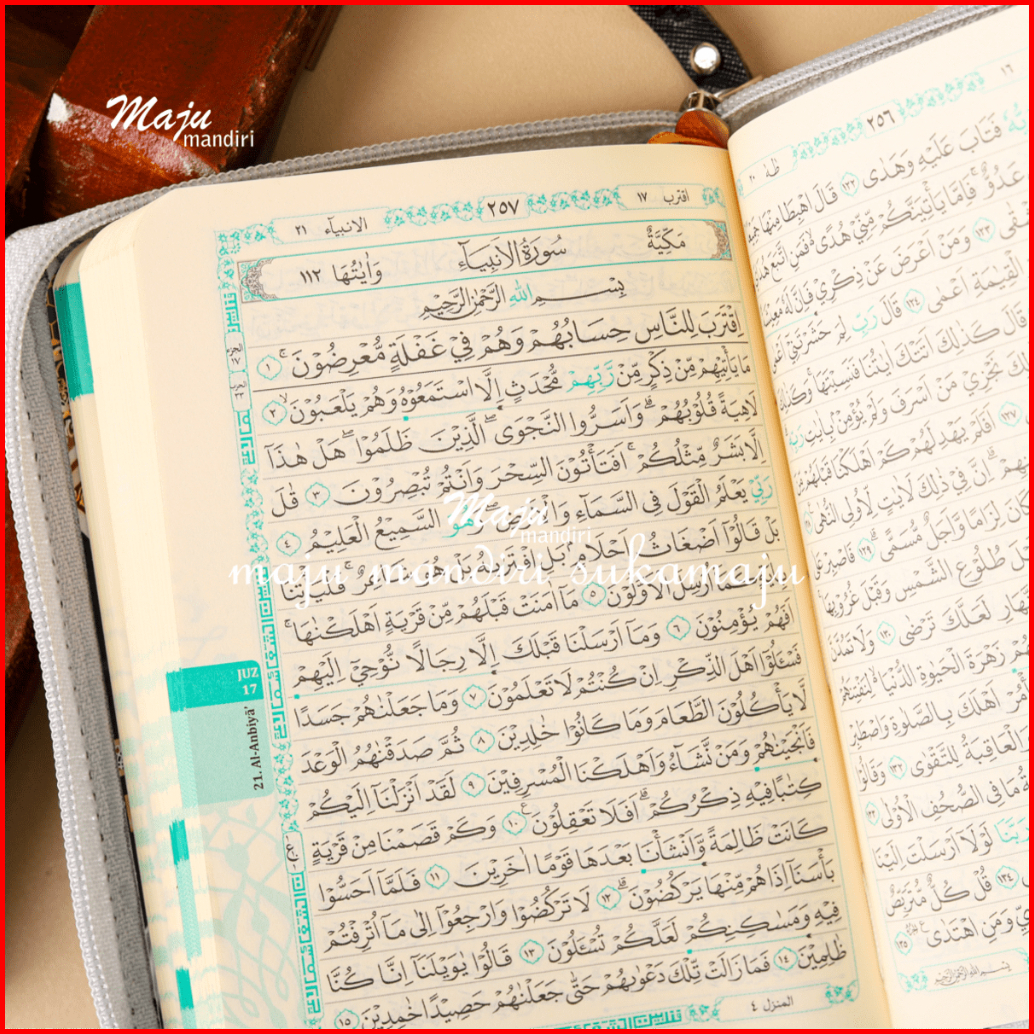 Maju
mandiri
اقترب ١٧
٢٥٧
الانبيآء ٢١
مَكِّيَّةٌ
سُوْرَةُ الْاَنْبِيَآءِ
وَاٰيٰتُهَا ١١٢
بِسْــمِ اللّٰهِ الرَّحْمٰنِ الرَّحِيْمِ
اِقْتَرَبَ لِلنَّاسِ حِسَابُهُمْ وَهُمْ فِيْ غَفْلَةٍ مُّعْرِضُوْنَ ۚ ١
مَا يَأْتِيْهِمْ مِّنْ ذِكْرٍ مِّنْ رَّبِّهِمْ مُّحْدَثٍ اِلَّا اسْتَمَعُوْهُ وَهُمْ يَلْعَبُوْنَ ۙ ٢
لَاهِيَةً قُلُوْبُهُمْ ۗ وَاَسَرُّوا النَّجْوَى ۖ الَّذِيْنَ ظَلَمُوْا ۖ هَلْ هٰذَآ
اِلَّا بَشَرٌ مِّثْلُكُمْ ۚ اَفَتَأْتُوْنَ السِّحْرَ وَاَنْتُمْ تُبْصِرُوْنَ ٣ قٰلَ
رَبِّيْ يَعْلَمُ الْقَوْلَ فِى السَّمَاۤءِ وَالْاَرْضِ وَهُوَ السَّمِيْعُ الْعَلِيْمُ ٤
Maju
mandiri
بَلْ قَالُوْٓا اَضْغَاثُ اَحْلَامٍۢ بَلِ افْتَرٰىهُ بَلْ هُوَ شَاعِرٌ فَلْيَأْتِنَا
maju mandiri sukamaju
كَمَآ اُرْسِلَ الْاَوَّلُوْنَ ٥ مَآ اٰمَنَتْ قَبْلَهُمْ مِّنْ قَرْيَةٍ اَهْلَكْنٰهَا ۚ
اَفَهُمْ يُؤْمِنُوْنَ ٦ وَمَآ اَرْسَلْنَا قَبْلَكَ اِلَّا رِجَالًا نُّوْحِيْٓ اِلَيْهِمْ
فَسْـَٔلُوْٓا اَهْلَ الذِّكْرِ اِنْ كُنْتُمْ لَا تَعْلَمُوْنَ ٧ وَمَا جَعَلْنٰهُمْ جَسَدًا
لَّا يَأْكُلُوْنَ الطَّعَامَ وَمَا كَانُوْا خٰلِدِيْنَ ٨ ثُمَّ صَدَقْنٰهُمُ الْوَعْدَ
فَاَنْجَيْنٰهُمْ وَمَنْ نَّشَاۤءُ وَاَهْلَكْنَا الْمُسْرِفِيْنَ ٩ لَقَدْ اَنْزَلْنَآ اِلَيْكُمْ
كِتٰبًا فِيْهِ ذِكْرُكُمْ ۗ اَفَلَا تَعْقِلُوْنَ ࣖ ١٠ وَكَمْ قَصَمْنَا مِنْ قَرْيَةٍ
كَانَتْ ظَالِمَةً وَّاَنْشَأْنَا بَعْدَهَا قَوْمًا اٰخَرِيْنَ ١١ فَلَمَّآ اَحَسُّوْا
بَأْسَنَآ اِذَا هُمْ مِّنْهَا يَرْكُضُوْنَ ۗ ١٢ لَا تَرْكُضُوْا وَارْجِعُوْٓا اِلٰى مَآ اُتْرِفْتُمْ
فِيْهِ وَمَسٰكِنِكُمْ لَعَلَّكُمْ تُسْـَٔلُوْنَ ١٣ قَالُوْا يٰوَيْلَنَآ اِنَّا كُنَّا
ظٰلِمِيْنَ ١٤ فَمَا زَالَتْ تِّلْكَ دَعْوٰىهُمْ حَتّٰى جَعَلْنٰهُمْ حَصِيْدًا خٰمِدِيْنَ ١٥
المنزل ٤
JUZ
17
21. Al-Anbiyā'
١٦
٢٥٦
طٰهٰ ٢٠
فَتَابَ عَلَيْهِ وَهَدٰى ١٢٢ قَالَ اهْبِطَا مِنْهَا
عَدُوٌّ ۚ فَاِمَّا يَأْتِيَنَّكُمْ مِّنِّيْ هُدًى ۙ فَمَنِ اتَّبَعَ
١٢٣ وَمَنْ اَعْرَضَ عَنْ ذِكْرِيْ فَاِنَّ لَهٗ
الْقِيٰمَةِ اَعْمٰى ١٢٤ قَالَ رَبِّ لِمَ حَشَرْتَنِيْٓ اَعْمٰى
قَالَ كَذٰلِكَ اَتَتْكَ اٰيٰتُنَا فَنَسِيْتَهَا ۚ
نَجْزِيْ مَنْ اَسْرَفَ وَلَمْ يُؤْمِنْۢ بِاٰيٰتِ رَبِّهٖ
١٢٧ اَفَلَمْ يَهْدِ لَهُمْ كَمْ اَهْلَكْنَا قَبْلَهُمْ
اِنَّ فِيْ ذٰلِكَ لَاٰيٰتٍ لِّاُولِى النُّهٰى
لِزَامًا وَّاَجَلٌ مُّسَمًّى ۗ ١٢٩ فَاصْبِرْ عَلٰى
طُلُوْعِ الشَّمْسِ وَقَبْلَ غُرُوْبِهَا
لَعَلَّكَ تَرْضٰى ١٣٠ وَلَا تَمُدَّنَّ
زَهْرَةَ الْحَيٰوةِ الدُّنْيَا ۙ لِنَفْتِنَهُمْ
اَهْلَكَ بِالصَّلٰوةِ وَاصْطَبِرْ
وَالْعَاقِبَةُ لِلتَّقْوٰى ١٣٢ وَقَالُوْا
مَا فِى الصُّحُفِ الْاُوْلٰى
لَوْلَآ اَرْسَلْتَ اِلَيْنَا
١٣٤ قُلْ كُلٌّ مُّتَرَبِّصٌ
وَمَنِ اهْتَدٰى ࣖ ١٣٥